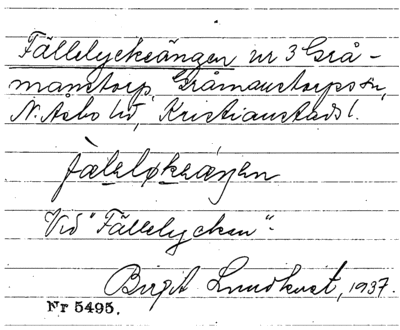 Fällelycksängen nr 3 Grå-
manstorp, Gråmanstorps sn,
N. Åsbo hd, Kristianstads l.
fäleløkeäŋen
Vid "Fällelycken".
Birgit Lundkvist, 1937.
Nr 5495.